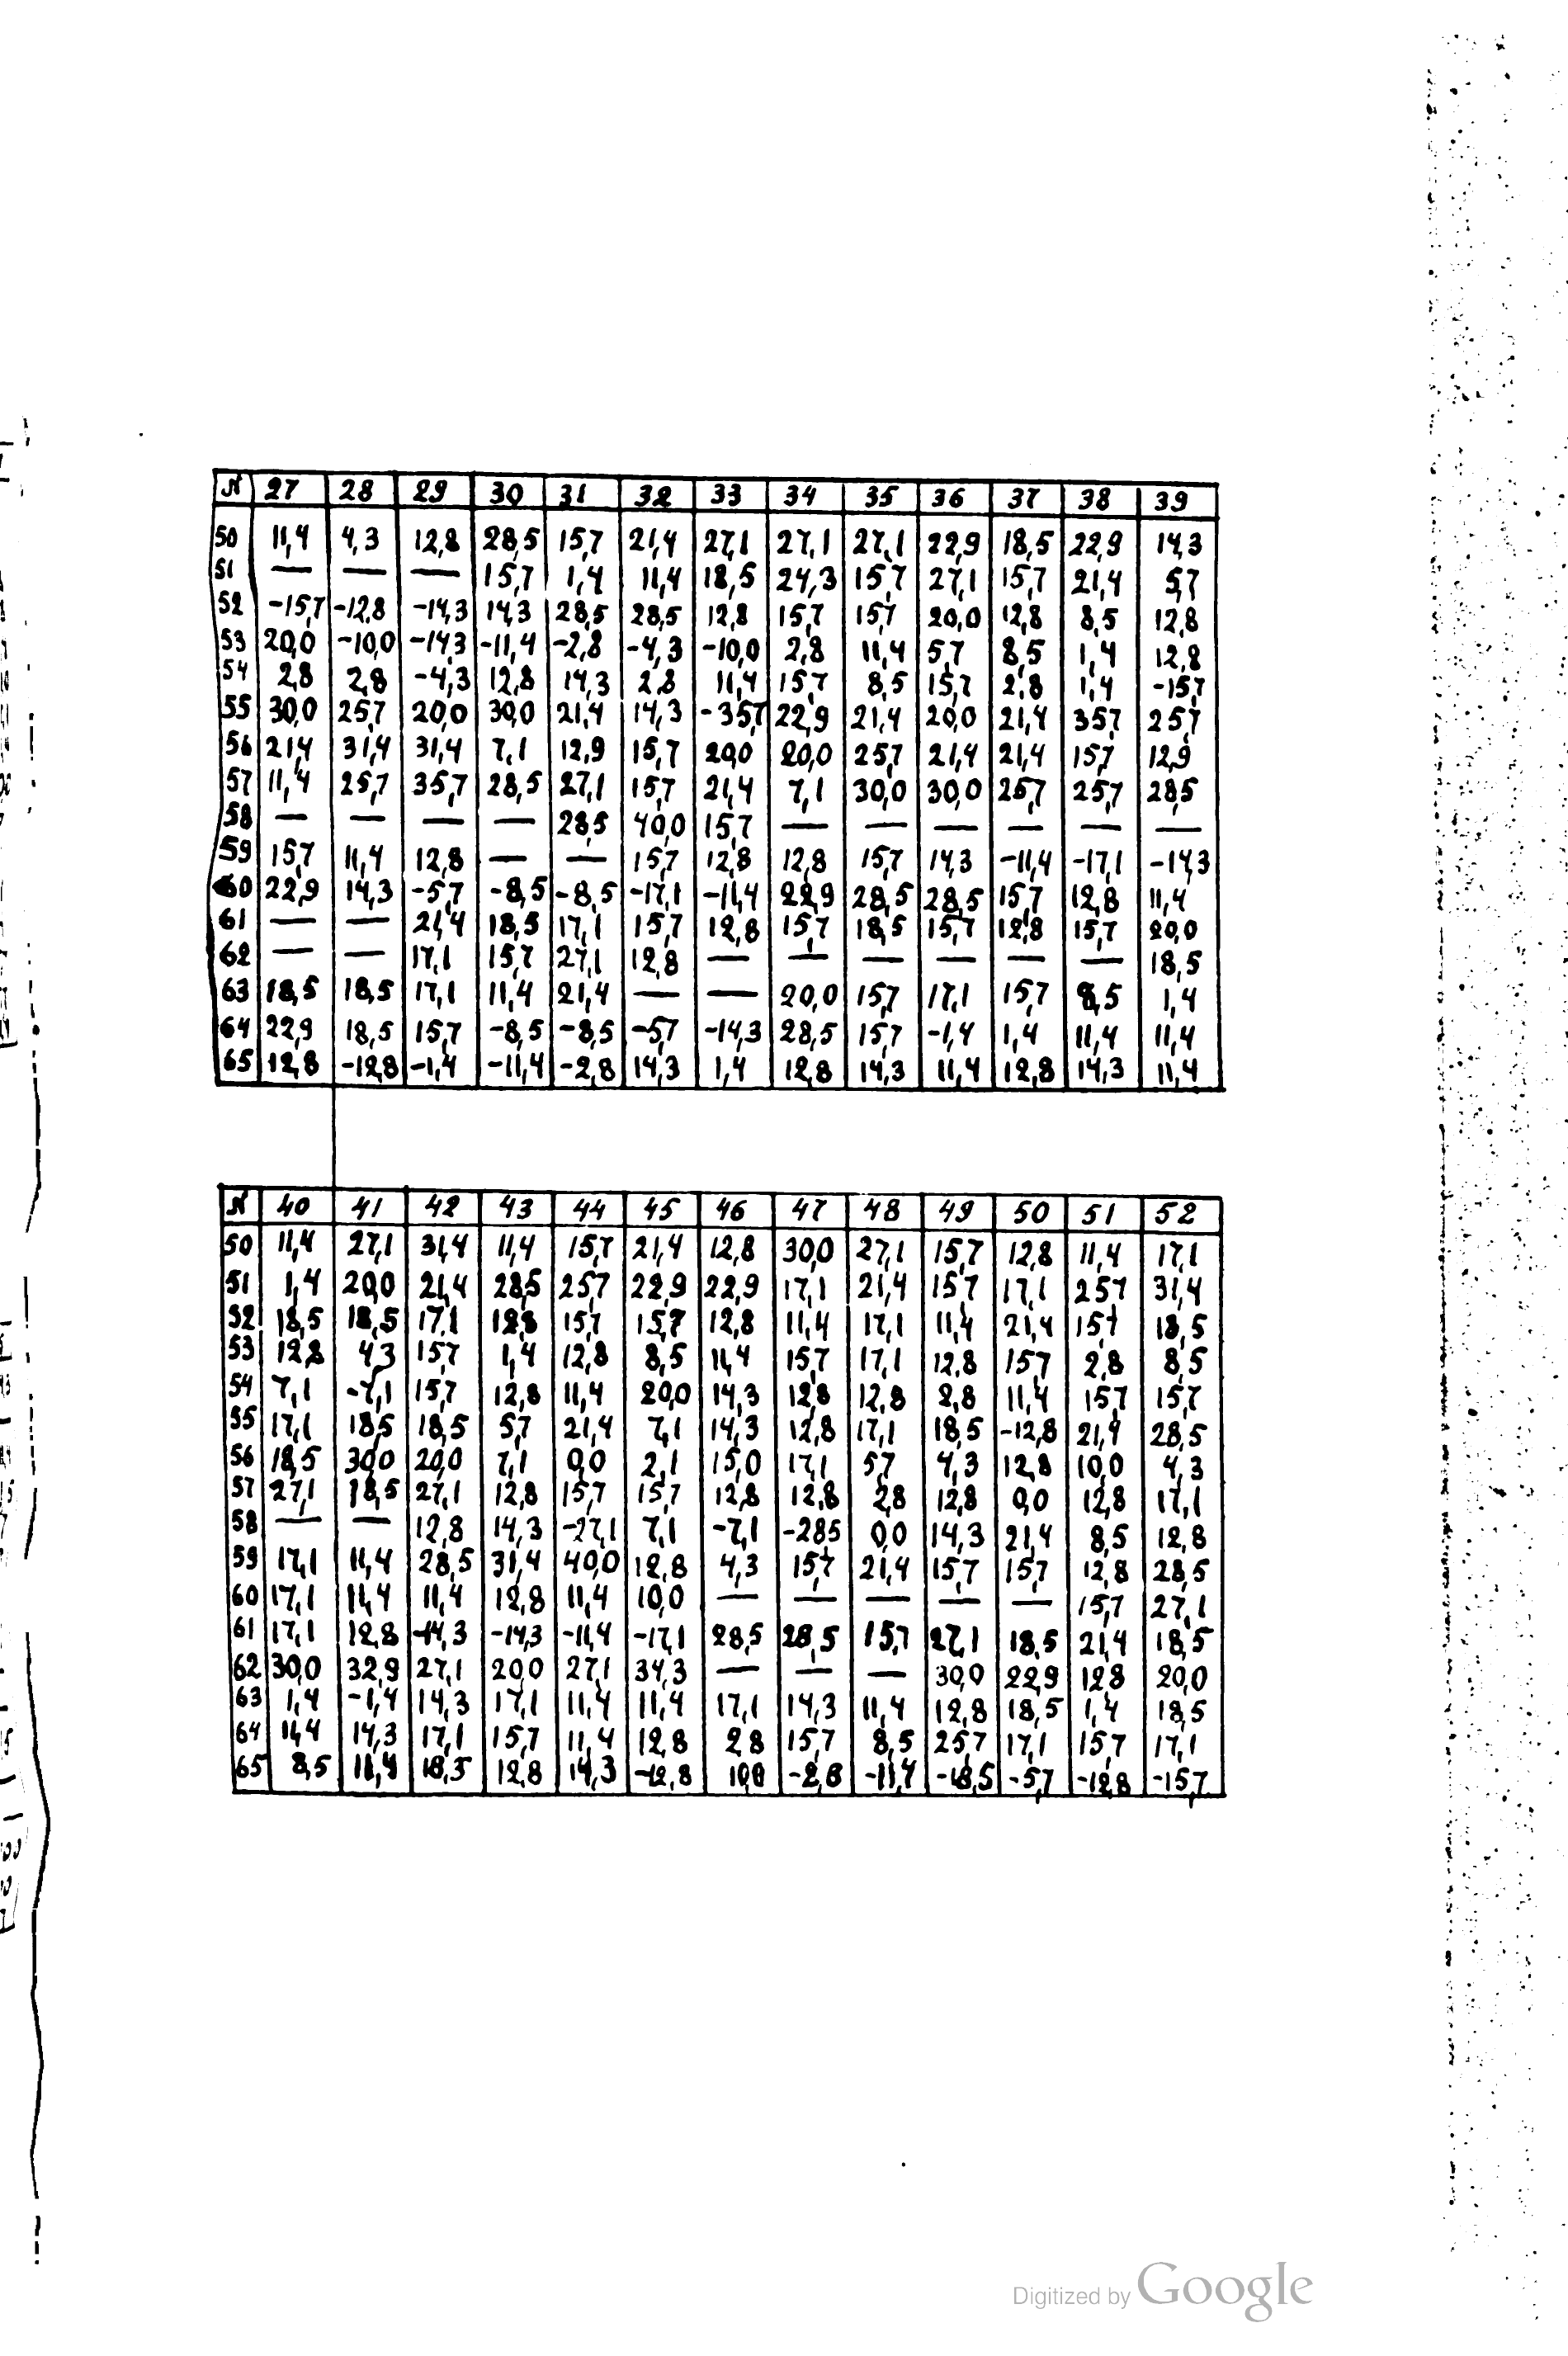 N 27 28 29 30 31 32 33 34 35 36 37 38 39
50 11,4 4,3 12,8 28,5 15,7 21,4 27,1 27,1 27,1 22,9 18,5 22,9 14,3
51 — — — 15,7 1,4 11,4 18,5 24,3 15,7 27,1 15,7 21,4 5,7
52 -15,7 -12,8 -14,3 14,3 28,5 28,5 12,8 15,7 15,7 20,0 12,8 8,5 12,8
53 20,0 -10,0 -14,3 -11,4 -2,8 -4,3 -10,0 2,8 11,4 5,7 8,5 1,4 12,8
54 2,8 2,8 -4,3 12,8 14,3 2,8 11,4 15,7 8,5 15,7 2,8 1,4 -15,7
55 30,0 25,7 20,0 30,0 21,4 14,3 -35,7 22,9 21,4 20,0 21,4 35,7 25,7
56 21,4 31,4 31,4 7,1 12,9 15,7 20,0 20,0 25,7 21,4 21,4 15,7 12,9
57 11,4 25,7 35,7 28,5 27,1 15,7 21,4 7,1 30,0 30,0 25,7 25,7 28,5
58 — — — — 28,5 40,0 15,7 — — — — — —
59 15,7 11,4 12,8 — — 15,7 12,8 12,8 15,7 14,3 -11,4 -17,1 -14,3
60 22,9 14,3 -5,7 -8,5 -8,5 -17,1 -11,4 22,9 28,5 28,5 15,7 12,8 11,4
61 — — 21,4 18,5 17,1 15,7 12,8 15,7 18,5 15,7 12,8 15,7 20,0
62 — — 17,1 15,7 27,1 12,8 — — — — — — 18,5
63 18,5 18,5 17,1 11,4 21,4 — — 20,0 15,7 17,1 15,7 8,5 1,4
64 22,9 18,5 15,7 -8,5 -8,5 -5,7 -14,3 28,5 15,7 -1,4 1,4 11,4 11,4
65 12,8 -12,8 -1,4 -11,4 -2,8 14,3 1,4 12,8 14,3 11,4 12,8 14,3 11,4
N 40 41 42 43 44 45 46 47 48 49 50 51 52
50 11,4 27,1 31,4 11,4 15,7 21,4 12,8 30,0 27,1 15,7 12,8 11,4 17,1
51 1,4 20,0 21,4 28,5 25,7 22,9 22,9 17,1 21,4 15,7 17,1 25,7 31,4
52 18,5 18,5 17,1 12,8 15,7 15,7 12,8 11,4 17,1 11,4 21,4 15,7 18,5
53 12,8 4,3 15,7 1,4 12,8 8,5 11,4 15,7 17,1 12,8 15,7 2,8 8,5
54 7,1 -7,1 15,7 12,8 11,4 20,0 14,3 12,8 12,8 2,8 11,4 15,7 15,7
55 17,1 18,5 18,5 5,7 21,4 7,1 14,3 12,8 17,1 18,5 -12,8 21,4 28,5
56 18,5 30,0 20,0 7,1 0,0 2,1 15,0 17,1 5,7 4,3 12,8 10,0 4,3
57 27,1 18,5 27,1 12,8 15,7 15,7 12,8 12,8 2,8 12,8 0,0 12,8 17,1
58 — — 12,8 14,3 -27,1 7,1 -7,1 -28,5 0,0 14,3 21,4 8,5 12,8
59 17,1 11,4 28,5 31,4 40,0 12,8 4,3 15,7 21,4 15,7 15,7 12,8 28,5
60 17,1 11,4 11,4 12,8 11,4 10,0 — — — — — 15,7 27,1
61 17,1 12,8 -14,3 -14,3 -11,4 -17,1 28,5 28,5 15,7 27,1 18,5 21,4 18,5
62 30,0 32,9 27,1 20,0 27,1 34,3 — — — 30,0 22,9 12,8 20,0
63 1,4 -1,4 14,3 17,1 11,4 11,4 17,1 14,3 11,4 12,8 18,5 1,4 18,5
64 11,4 14,3 17,1 15,7 11,4 12,8 2,8 15,7 8,5 25,7 17,1 15,7 17,1
65 8,5 11,4 18,5 12,8 14,3 -12,8 10,0 -2,8 -11,4 -18,5 -5,7 -12,8 -15,7
Digitized by Google